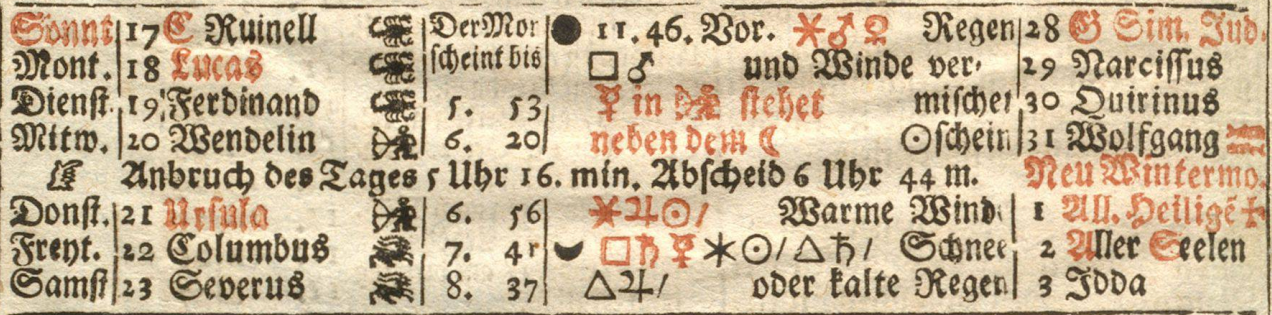 Sonnt 17 C Ruinell Der Mor ● 11. 46. Vor. ⚹ ♂ ♀ Regen 28 G Sim. Jud.
Mont. 18 Lucas scheint bis □ ♂ und Winde ver- 29 Narcissus
Dienst. 19 Ferdinand 5. 53 ☿ in stehet mischet 30 Quirinus
Mittw. 20 Wendelin ♐ 6. 20 neben dem ☾ ☉schein 31 Wolfgang
Anbruch des Tages 5 Uhr 16. min. Abscheid 6 Uhr 44 m. Neu Wintermo.
Donst. 21 Ursula ♐ 6. 56 ⚹ ♃ ☉ / Warme Wind 1 All. Heiligẽ ✠
Freyt. 22 Columbus 7. 41 □ ♄ ☿ ⚹ ☉ / △ ♄ / Schnee 2 Aller Seelen
Samst 23 Severus 8. 37 △ ♃ / oder kalte Regen 3 Idda